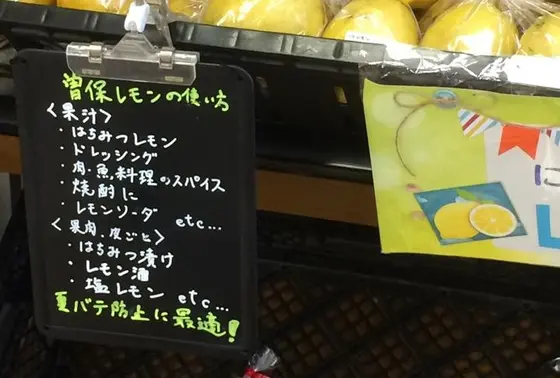 曽保レモンの使い方
<果汁>
・はちみつレモン
・ドレッシング
・肉・魚料理のスパイス
・焼酎に
・レモンソーダ etc...
<果肉・皮ごと>
・はちみつ漬け
・レモン酒
・塩レモン etc...
夏バテ防止に最適!
に
L